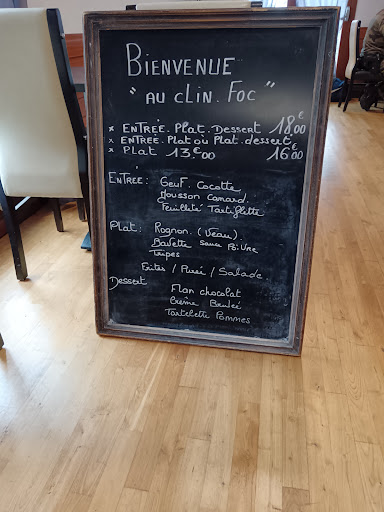 BIENVENUE
" AU CLIN. FOC "
x ENTRÉE. Plat. Dessert 18,€00
x ENTRÉE. Plat ou Plat. dessert
x Plat 13.€00 16.€00
ENTRÉE: Oeuf. Cocotte
Mousson Canard.
Feuilleté Tartiflette
Plat: Rognon. (Veau).
Bavette sauce Poivre
Tripes
Frites / Purée / Salade
Dessert
Flan chocolat
Crème Brulée
Tartelette Pommes